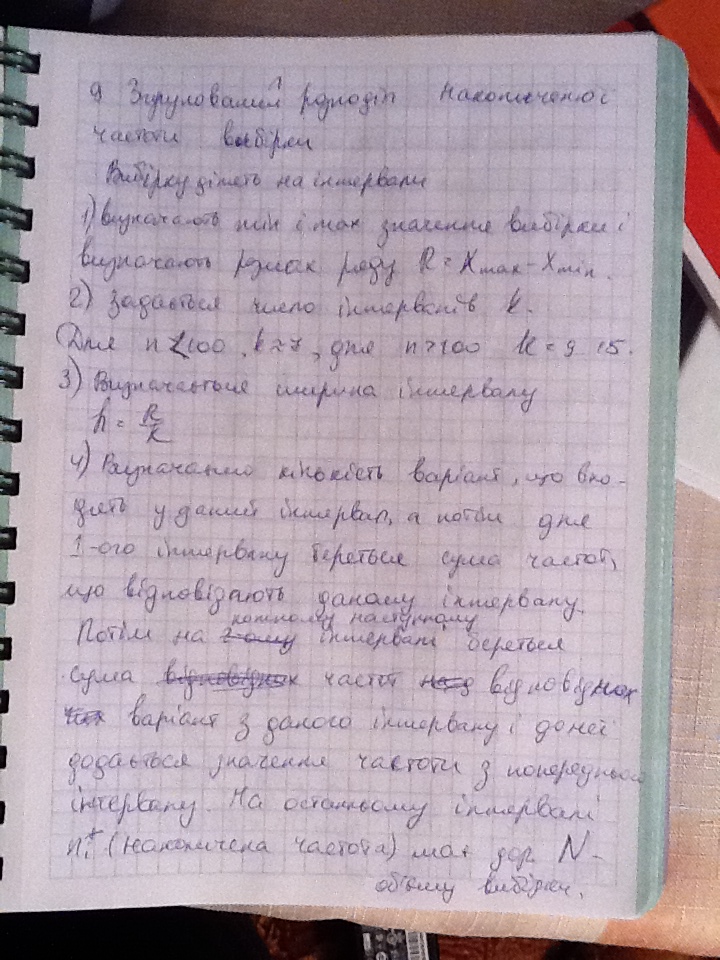 9 Згрупований розподіл накопиченої
частоти вибірки
Вибірку ділять на інтервали
1) Визначають min і max значення вибірки і
визначають розмах ряду R = Xmax - Xmin.
2) Задається число інтервалів k.
(Для n<100, k=7, для n>100 k=9..15.
3) Визначається ширина інтервалу
h = R/k
4) Визначають кількість варіант, що вхо-
дять у даний інтервал, а потім для
1-ого інтервалу береться сума частот,
що відповідають даному інтервалу.
Потім на інтервалі береться
сума частот відповідних
варіант з даного інтервалу і до неї
додається значення частоти з попереднього
інтервалу. На останньому інтервалі
(накопичена частота) має дор. N -
обсягу вибірки.